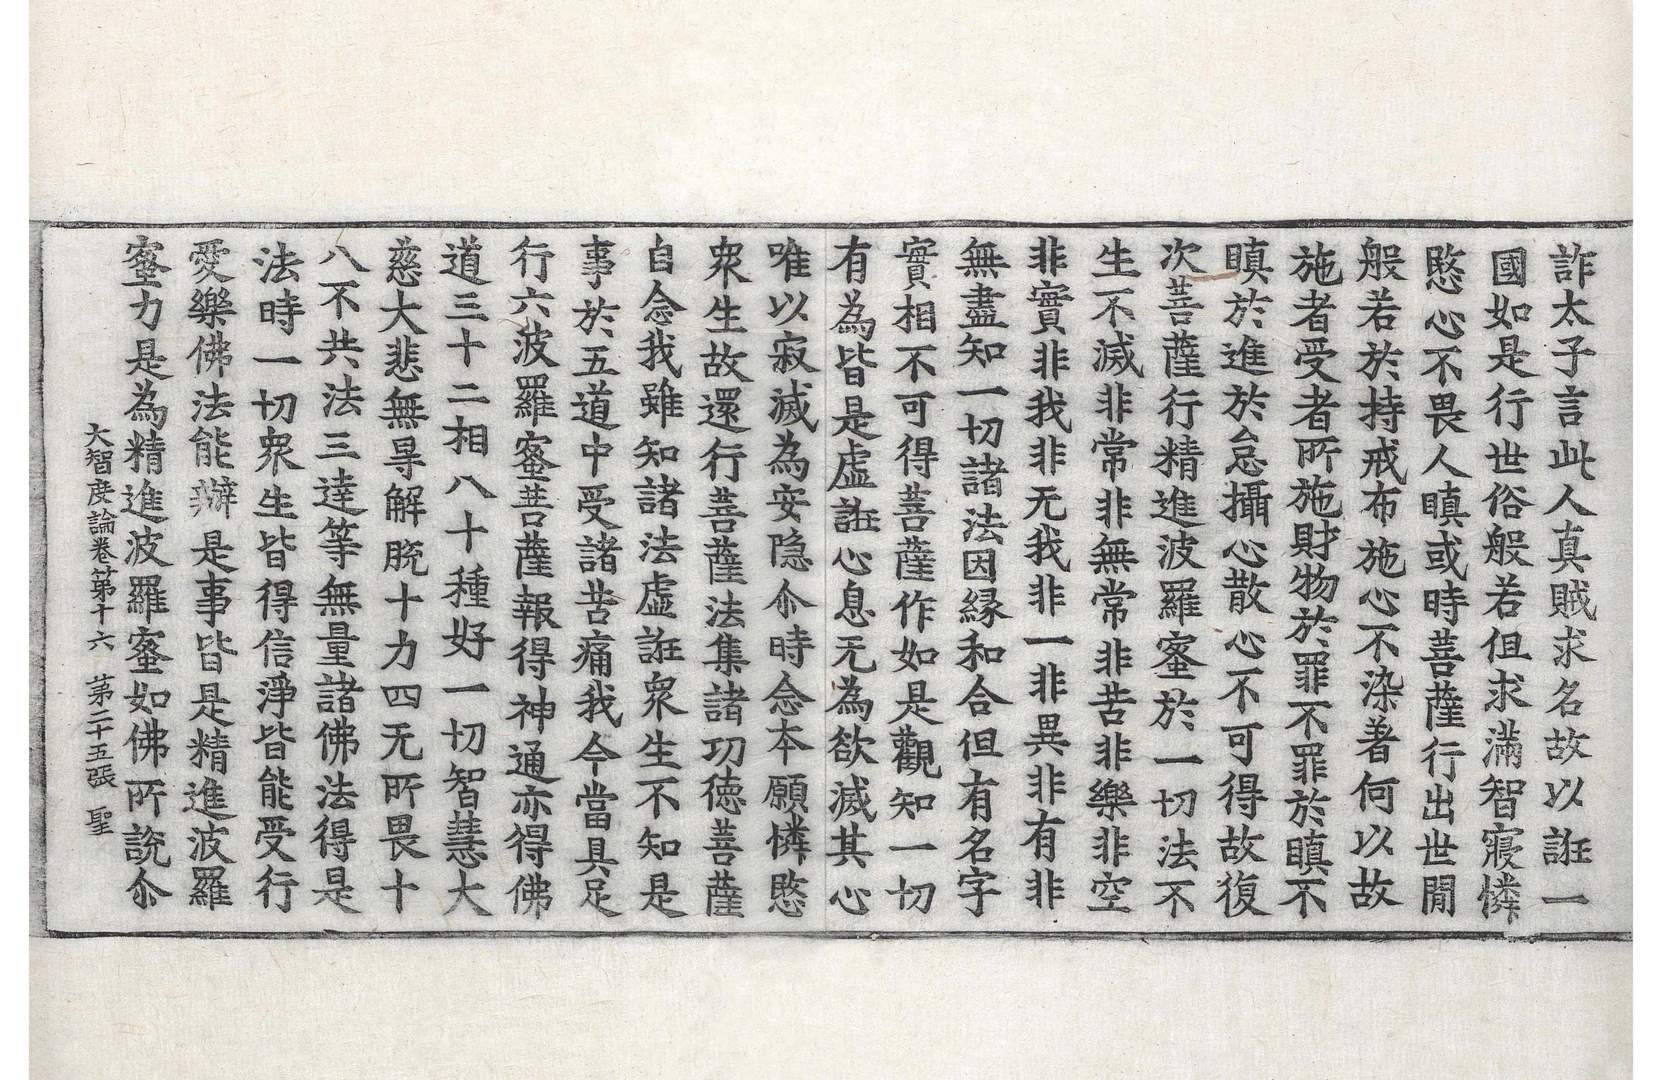 詐太子言此人真賊求名故以誑一
國如是行世俗般若但求滿智寢憐
愍心不畏人瞋或時菩薩行出世閒
般若於持戒布施心不染著何以故
施者受者所施財物於罪不罪於瞋不
瞋於進於怠攝心散心不可得故復
次菩薩行精進波羅蜜於一切法不
生不滅非常非無常非苦非樂非空
非實非我非无我非一非異非有非
無盡知一切諸法因縁和合但有名字
實相不可得菩薩作如是觀知一切
有為皆是虛誑心息无為欲滅其心
唯以寂滅為安隐尒時念本願憐愍
衆生故還行菩薩法集諸功徳菩薩
自念我雖知諸法虛誑衆生不知是
事於五道中受諸苦痛我今當具足
行六波羅蜜菩薩報得神通亦得佛
道三十二相八十種好一切智慧大
慈大悲無㝵解脫十力四无所畏十
八不共法三達等無量諸佛法得是
法時一切衆生皆得信淨皆能受行
愛樂佛法能辦是事皆是精進波羅
蜜力是為精進波羅蜜如佛所說尒
大智度論卷第十六 第二十五張 聖